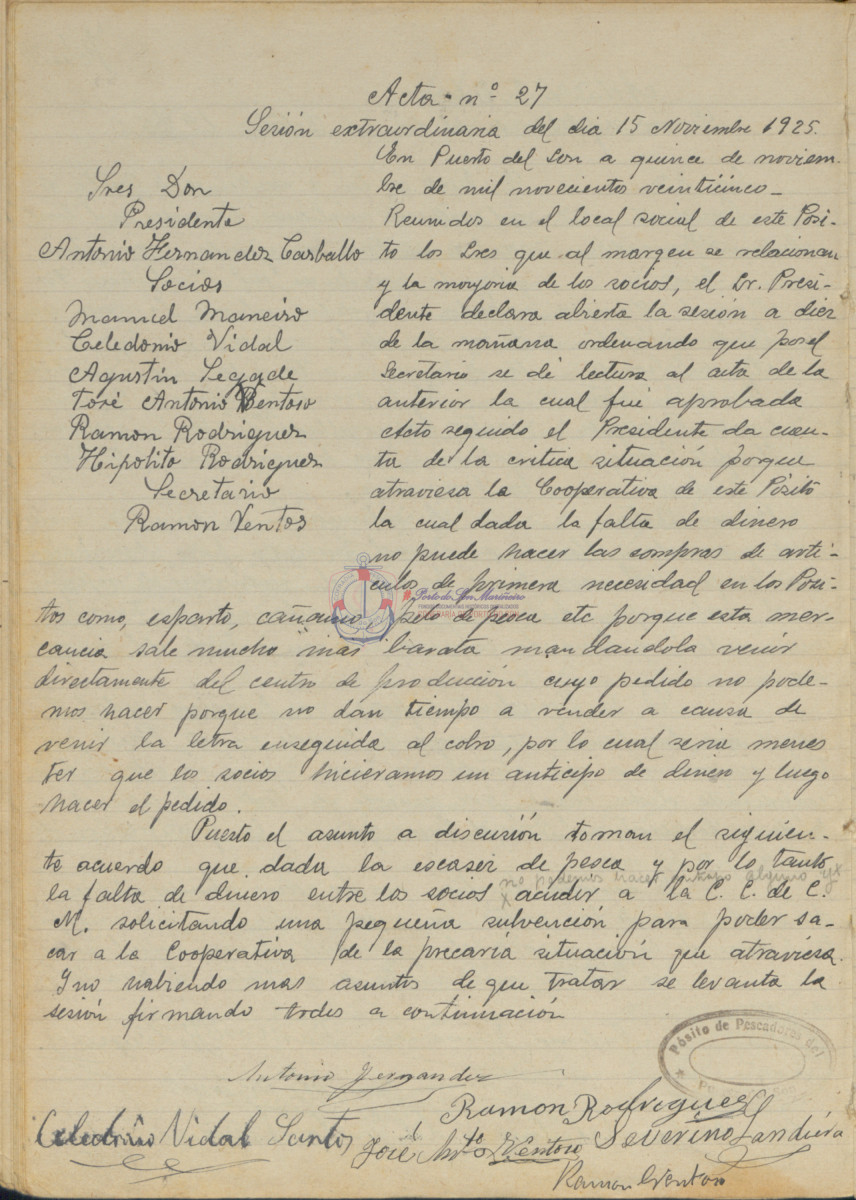 Acta nº 27
Sesión extraordinaria del dia 15 Noviembre 1925.
Sres Don
Presidente
Antonio Hernandez Carballo
Socios
Manuel Maneiro
Celedonio Vidal
Agustín
José Antonio Ventoso
Ramon Rodriguez
Hipolito Rodriguez
Secretario
Ramon Ventos
En Puerto del Son a quince de noviem-
bre de mil novecientos veinticinco_
Reunidos en el local social de este Posi-
to los Sres que al margen se relacionan
y la mayoria de los socios, el Sr. Presi-
dente declara abierta la sesión a diez
de la mañana ordenando que por el
Secretario se dé lectura al acta de la
anterior la cual fué aprobada
Acto seguido el Presidente da cuen-
ta de la critica situación porque
atraviesa la Cooperativa de este Pósito
la cual dada la falta de dinero
no puede hacer las compras de arti-
culos de primera necesidad en los Posi-
tos como, esparto, cañamo, de pesca etc porque esta mer-
cancia sale mucho mas barata mandandola venir
directamente del centro de producción cuyo pedido no pode-
mos hacer porque no dan tiempo a vender a causa de
venir la letra enseguida al cobro, por lo cual seria menes
ter que los socios hicieramos un anticipo de dinero y luego
hacer el pedido.
Puesto el asunto a discusión toman el siguien-
te acuerdo que dada la escasez de pesca y por lo tanto
la falta de dinero entre los socios no podemos hacer alguno y acudir a la C. C. de C.
M. solicitando una pequeña subvención para poder sa-
car a la Cooperativa de la precaria situación que atraviesa.
Y no habiendo mas asuntos de que tratar se levanta la
sesión firmando todos a continuación
Pósito de Pescadores del
Antonio Hernandez
Ramon Rodriguez
Celedonio Vidal Santos
José Antº Ventoso
Severino
Ramon Ventos
Porto do Son Mariñeiro